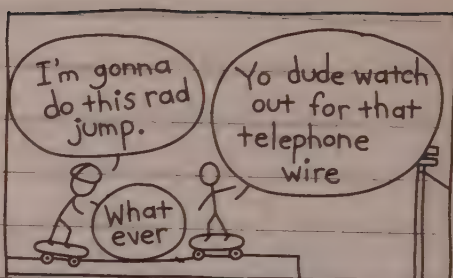 I'm gonna
do this rad
jump.
Yo dude watch
out for that
telephone
wire
What
ever